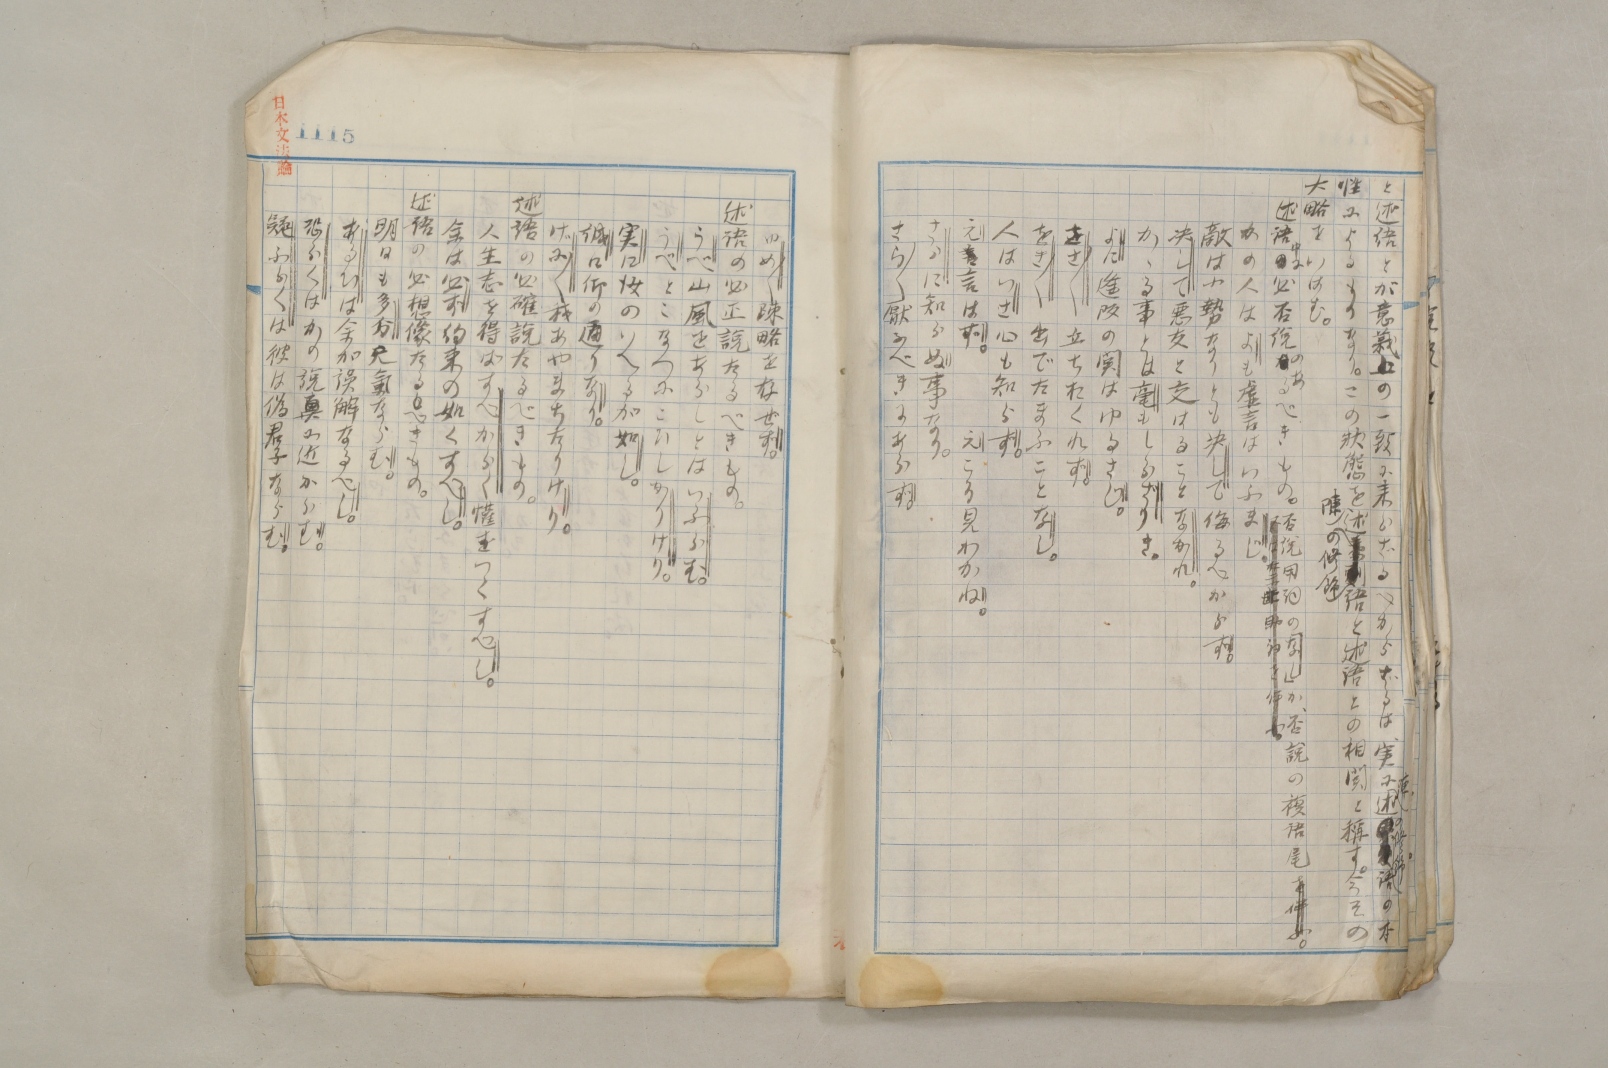 と述語とが意義上の一致に来らざるべからざるは、実に述語の本
性によるものなり。この状態を述語と述語との相関と稱す。今その
陳の修飾
大略をいはむ。
述語の必否説のあるべきもの。否説用詞の「なし」か、否説の複語尾
かの人はよも虚言はいふまじ。
敵は小勢なりとも決して侮るべからず。
決して悪友と交はることなかれ。
かゝる事とは毫もしらざりき。
よに逢坂の関はゆるさじ。
をさ〱立ちおくれず。
をさ〱出でたまふことなし。
人はいさ心も知らず。
元言はず。
さらに知らぬ事なり。 元こそ見わかね。
さら〱厭ふべきにあらず。
1115
日本文法論
ゆめ〱疎略をなせず。
述語の必正説たるべきもの。
うべ山風をあらしとはいふらむ。
うべとこなつにこひしかりけり。
実に汝のいへるが如し。
誠に仰の通りなり。
げに〱我あやまちたりけり。
述語の必確説たるべきもの。
人生志を得ばすべからく懽をつくすべし。
余は必ず約束の如くすべし。
述語の必想像たるべきもの。
明日も多分元氣ならむ。
あるひは余が誤解なるべし。
恐らくはかの説真に近からむ。
疑ふらくは彼は偽君子ならむ。